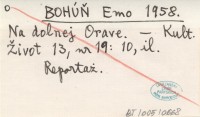 BOHÚŇ Emo 1958.
Na dolnej Orave. – Kult.
Život 13, nr 19: 10, il.
Reportaż.